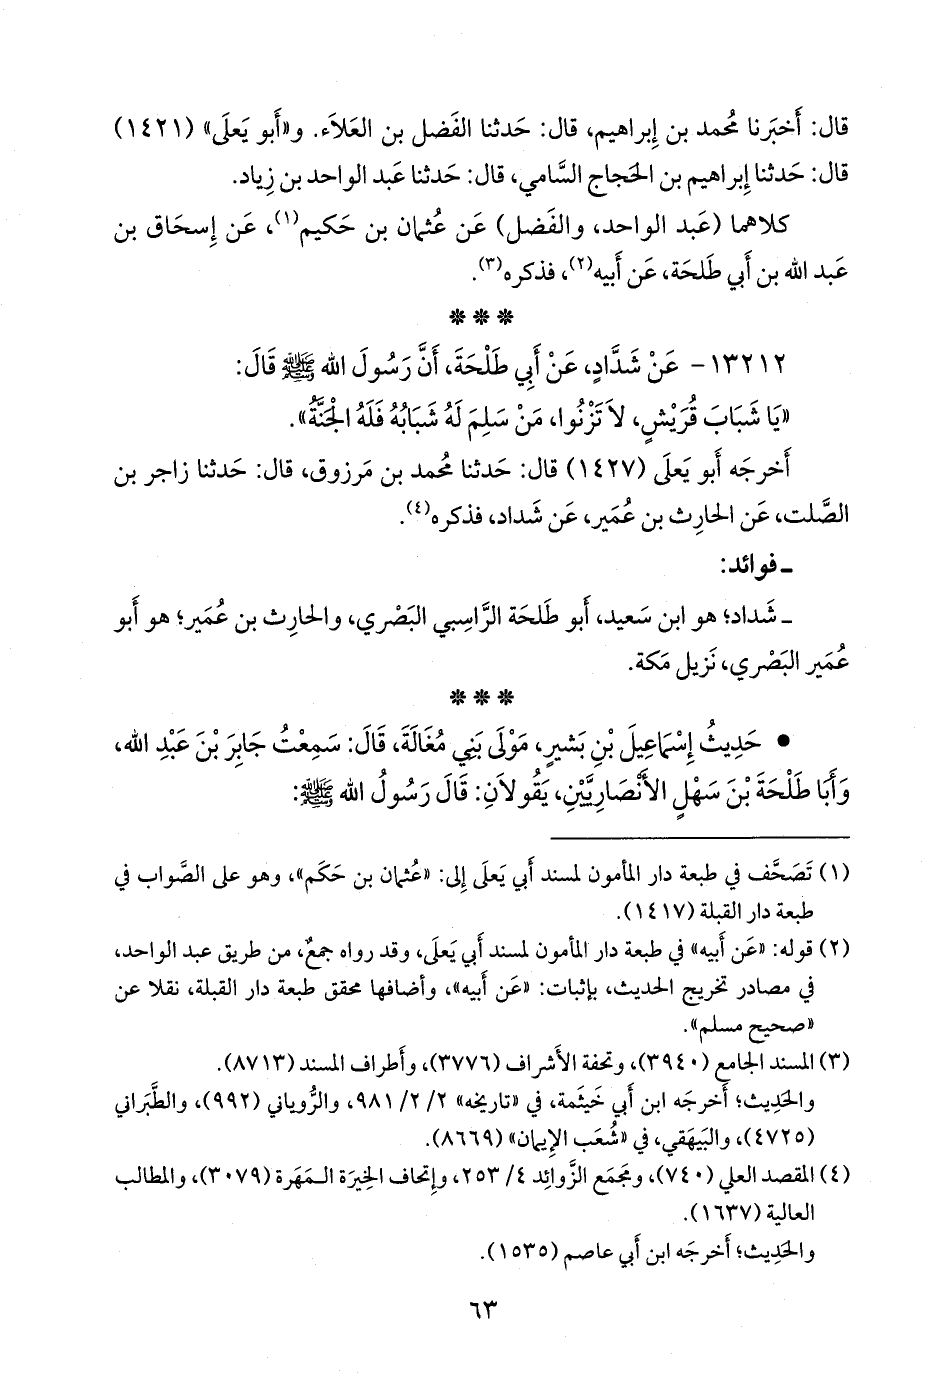 قال: أَخبَرنا مُحمد بن إِبراهيم، قال: حَدثنا الفَضل بن العَلاَء. و«أَبو يَعلَى» (١٤٢١)
قال: حَدثنا إِبراهيم بن الحَجاج السَّامي، قال: حَدثنا عَبد الواحد بن زِياد.
كلاهما (عَبد الواحد، والفَضل) عَن عُثمان بن حَكيم(١)، عَن إِسحَاق بن
عَبد الله بن أَبي طَلحَة، عَن أَبيه(٢)، فذكره(٣).
* * *
١٣٢١٢- عَنْ شَدَّادٍ، عَنْ أَبِي طَلْحَةَ، أَنَّ رَسُولَ الله ﷺ قَالَ:
«يَا شَبَابَ قُرَيْشٍ، لاَ تَزْنُوا، مَنْ سَلِمَ لَهُ شَبَابُهُ فَلَهُ الْجَنَّةُ».
أَخرجَه أَبو يَعلَى (١٤٢٧) قال: حَدثنا مُحمد بن مَرزوق، قال: حَدثنا زاجر بن
الصَّلت، عَن الحارِث بن عُمَير، عَن شَداد، فذكره(٤).
ـ فوائد:
ـ شَداد؛ هو ابن سَعيد، أَبو طَلحَة الرَّاسِبي البَصْري، والحارِث بن عُمَير؛ هو أَبو
عُمَير البَصْري، نَزيل مَكة.
* * *
● حَدِيثُ إِسْمَاعِيلَ بْنِ بَشِيرٍ، مَوْلَى بَنِي مُغَالَةَ، قَالَ: سَمِعْتُ جَابِرَ بْنَ عَبْدِ الله،
وَأَبَا طَلْحَةَ بْنَ سَهْلٍ الأَنْصَارِيَّيْنِ، يَقُولاَنِ: قَالَ رَسُولُ الله ﷺ:
(١) تَصَحَّف في طبعة دار المأمون لمسند أَبي يَعلَى إِلى: «عُثمان بن حَكَم»، وهو على الصَّواب في
طبعة دار القبلة (١٤١٧).
(٢) قوله: «عَن أَبيه» في طبعة دار المأمون لمسند أَبي يَعلَى، وقد رواه جمعٌ، من طريق عبد الواحد،
في مصادر تخريج الحديث، بإثبات: «عَن أَبيه»، وأضافها محقق طبعة دار القبلة، نقلا عن
«صحيح مسلم».
(٣) المسند الجامع (٣٩٤٠)، وتحفة الأَشراف (٣٧٧٦)، وأَطراف المسند (٨٧١٣).
والحَدِيث؛ أَخرجَه ابن أَبي خَيثَمة، في «تاريخه» ٢/ ٢/ ٩٨١، والرُّوياني (٩٩٢)، والطَّبَراني
(٤٧٢٥)، والبَيهَقي، في «شُعَب الإِيمان» (٨٦٦٩).
(٤) المقصد العلي (٧٤٠)، ومَجمَع الزَّوائِد ٤/ ٢٥٣، وإِتحاف الخِيرَة المَهَرة (٣٠٧٩)، والمطالب
العالية (١٦٣٧).
والحَدِيث؛ أَخرجَه ابن أَبي عاصم (١٥٣٥).
٦٣